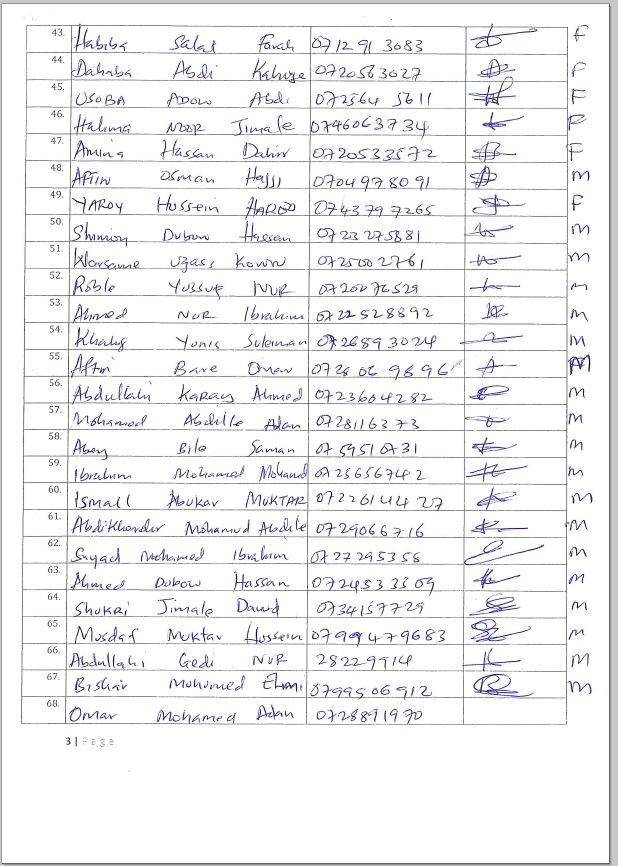 43. Habiba Salat Farah 0712913083 F
44. Dahaba Abdi 0720563027 F
45. USOBA ADOW Abdi 0725645611 F
46. Halima NOOR Jimale 0746063734 F
47. Amina Hassan Dahir 0720533572 F
48. AFTIN OSMAN HAJJI 0704978091 M
49. YAROY Hussein 0743797265 F
50. Dubow Hassan 0723275881 M
51. Warsame Ugass 0725002761 M
52. Roble Yussuf NUR 0720076529 M
53. Ahmed NUR Ibrahim 0722528892 M
54. Yunis Suleiman 0726893024 M
55. Aftin Bare Omar 0728069896 M
56. Abdullahi Ahmed 0723604282 M
57. Mohamed Abdille Adan 0728116373 M
58. Abey Bile Saman 0759510731 M
59. Ibrahim Mohamed Mohamed 0725656742 M
60. ISMAIL ABUKAR MUKTAR 0722614427 M
61. Mohamud Abdile 0729066716 M
62. Mohamed Ibrahim 0727295358 M
63. Ahmed DUBOW HASSAN 0724533309 M
64. SHUKRI Jimale Daud 0734157729 M
65. Muktar Hussein 0799479683 M
66. Abdullahi Gedi NUR 28229914 M
67. Bishar Mohamed Elmi 0799506912 M
68. Omar Mohamed Adan 0728891970
3 | Page